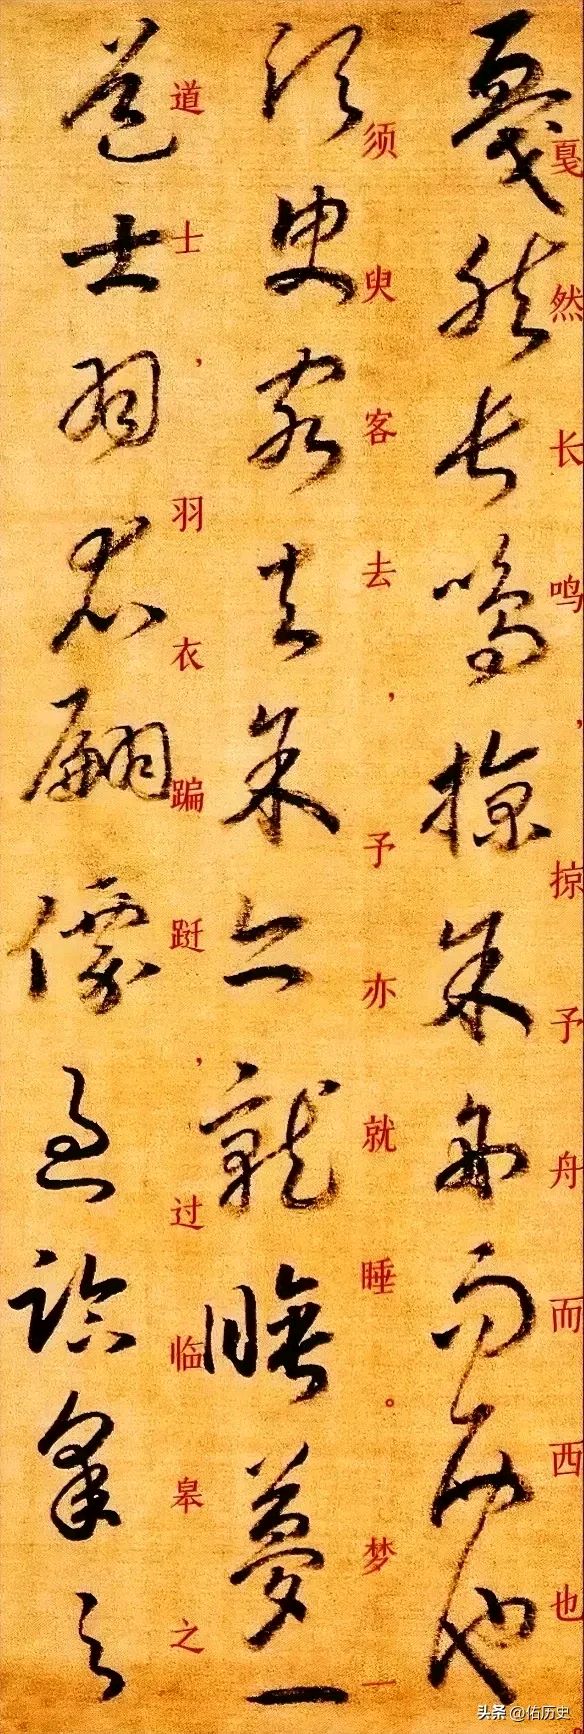 戛然長鳴掠予舟而西也
戛然长鸣，掠予舟而西也
須臾客去予亦就睡夢一
须臾客去，予亦就睡。梦一
道士羽衣翩僊過臨皋之
道士，羽衣蹁跹，过临皋之
头条 @佑历史